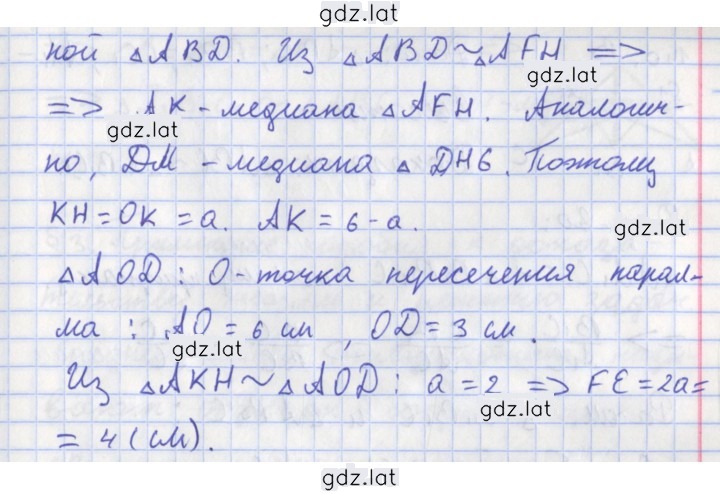 gdz.lat
ной △ABD. Из △ABD ~ △AFH =>
gdz.lat
=> AK - медиана △AFH. Аналогич-
gdz.lat
но, DM - медиана △DHG. Поэтому
KH = OK = a. AK = 6 - a.
gdz.lat
△AOD : O - точка пересечения парал-
ма : AO = 6 см, OD = 3 см.
gdz.lat
Из △AKH ~ △AOD : a = 2 => FE = 2a =
gdz.lat
= 4 (см).
gdz.lat